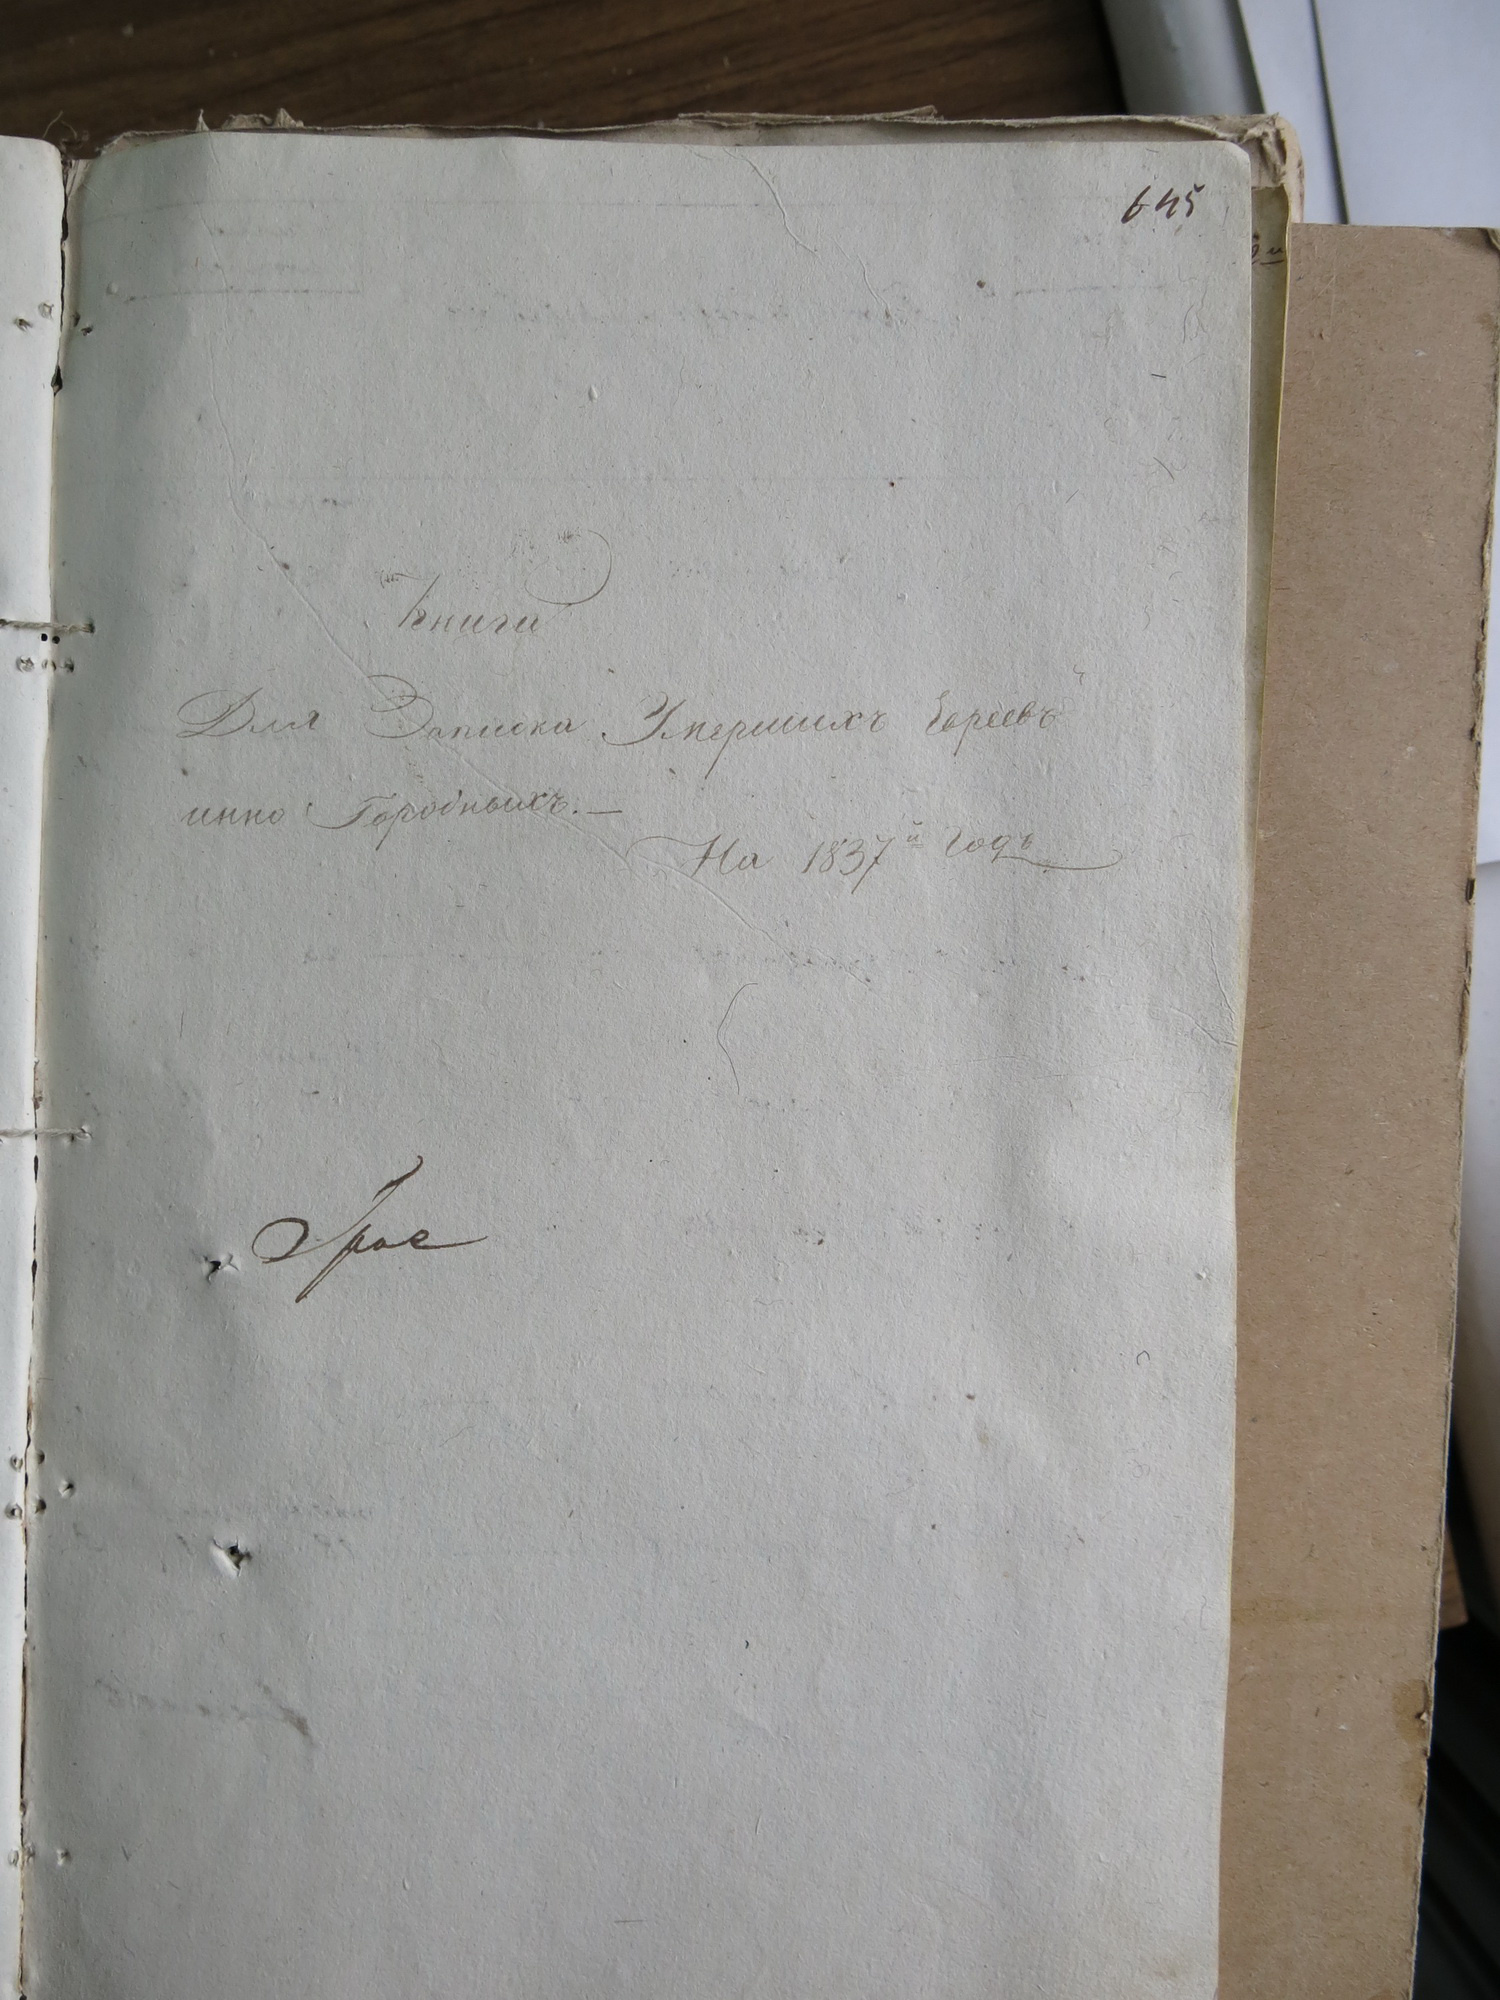 645
Книги
Для Записка Умершихъ Евреевъ
инно Городныхъ. —
На 1837й годъ